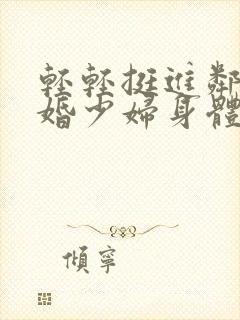 輕輕挺進鄰
婚少婦身體
傾寧